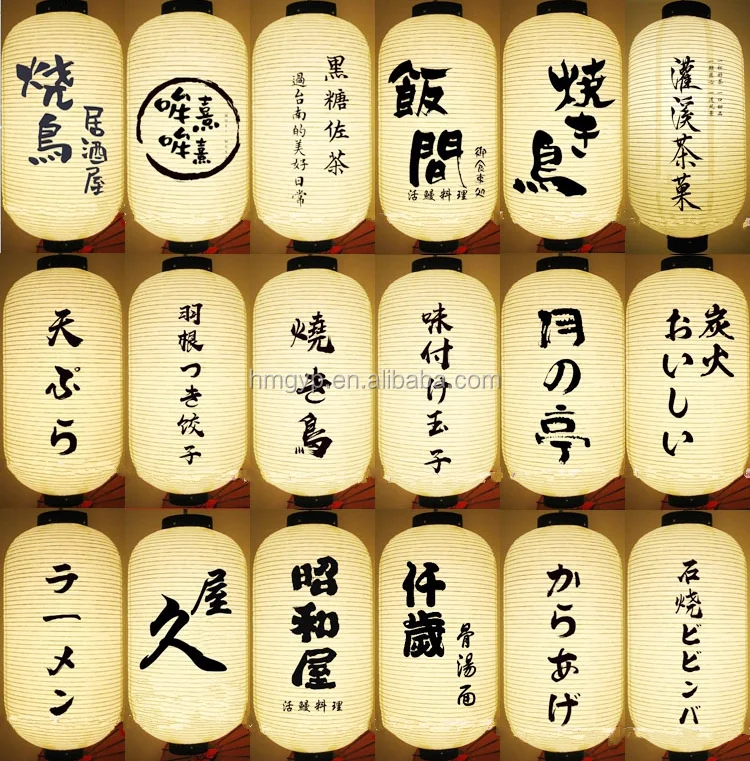 烧鳥
居酒屋
熹熹
哞哞
黑糖佐茶
過台南的美好日常
飯間
御食事処
活鰻料理
焼き鳥
灌溪茶菓
天ぷら
羽根つき餃子
燒き鳥
味付け玉子
月の亭
炭火
おいしい
hmgyp.en.alibaba.com
ラーメン
屋久
昭和屋
活鰻料理
仟歲
骨湯面
からあげ
石烧ビビンバ